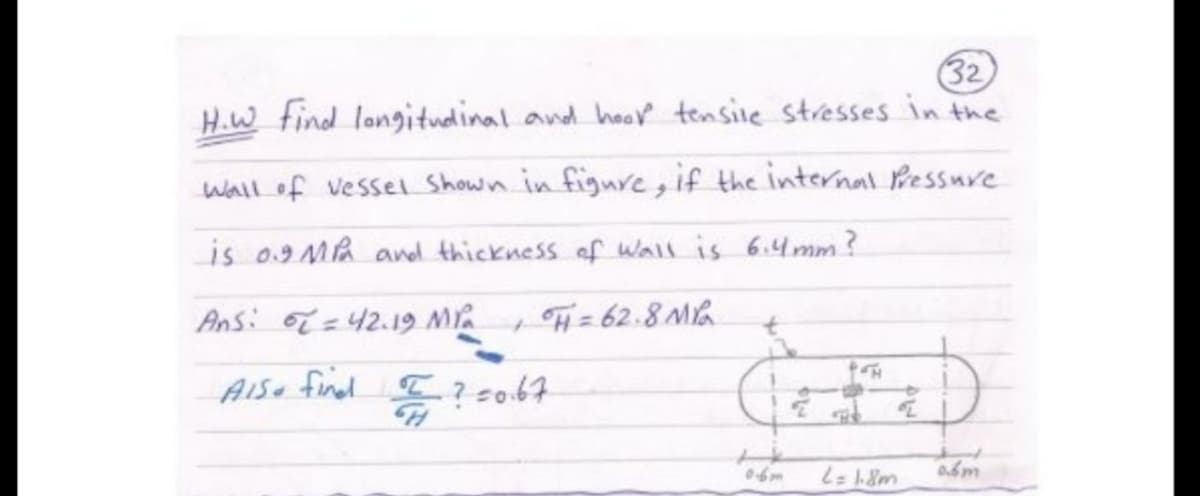 32
H.W find longitudinal and hoop tensile stresses in the
wall of vessel shown in figure, if the internal Pressure
is 0.9 MPa and thickness of wall is 6.4 mm?
Ans: σL = 42.19 MPa , σH = 62.8 MPa
t
Also find σL/σH ? = 0.67
σH
σL σH σL
0.6m L = 1.8m 0.6m